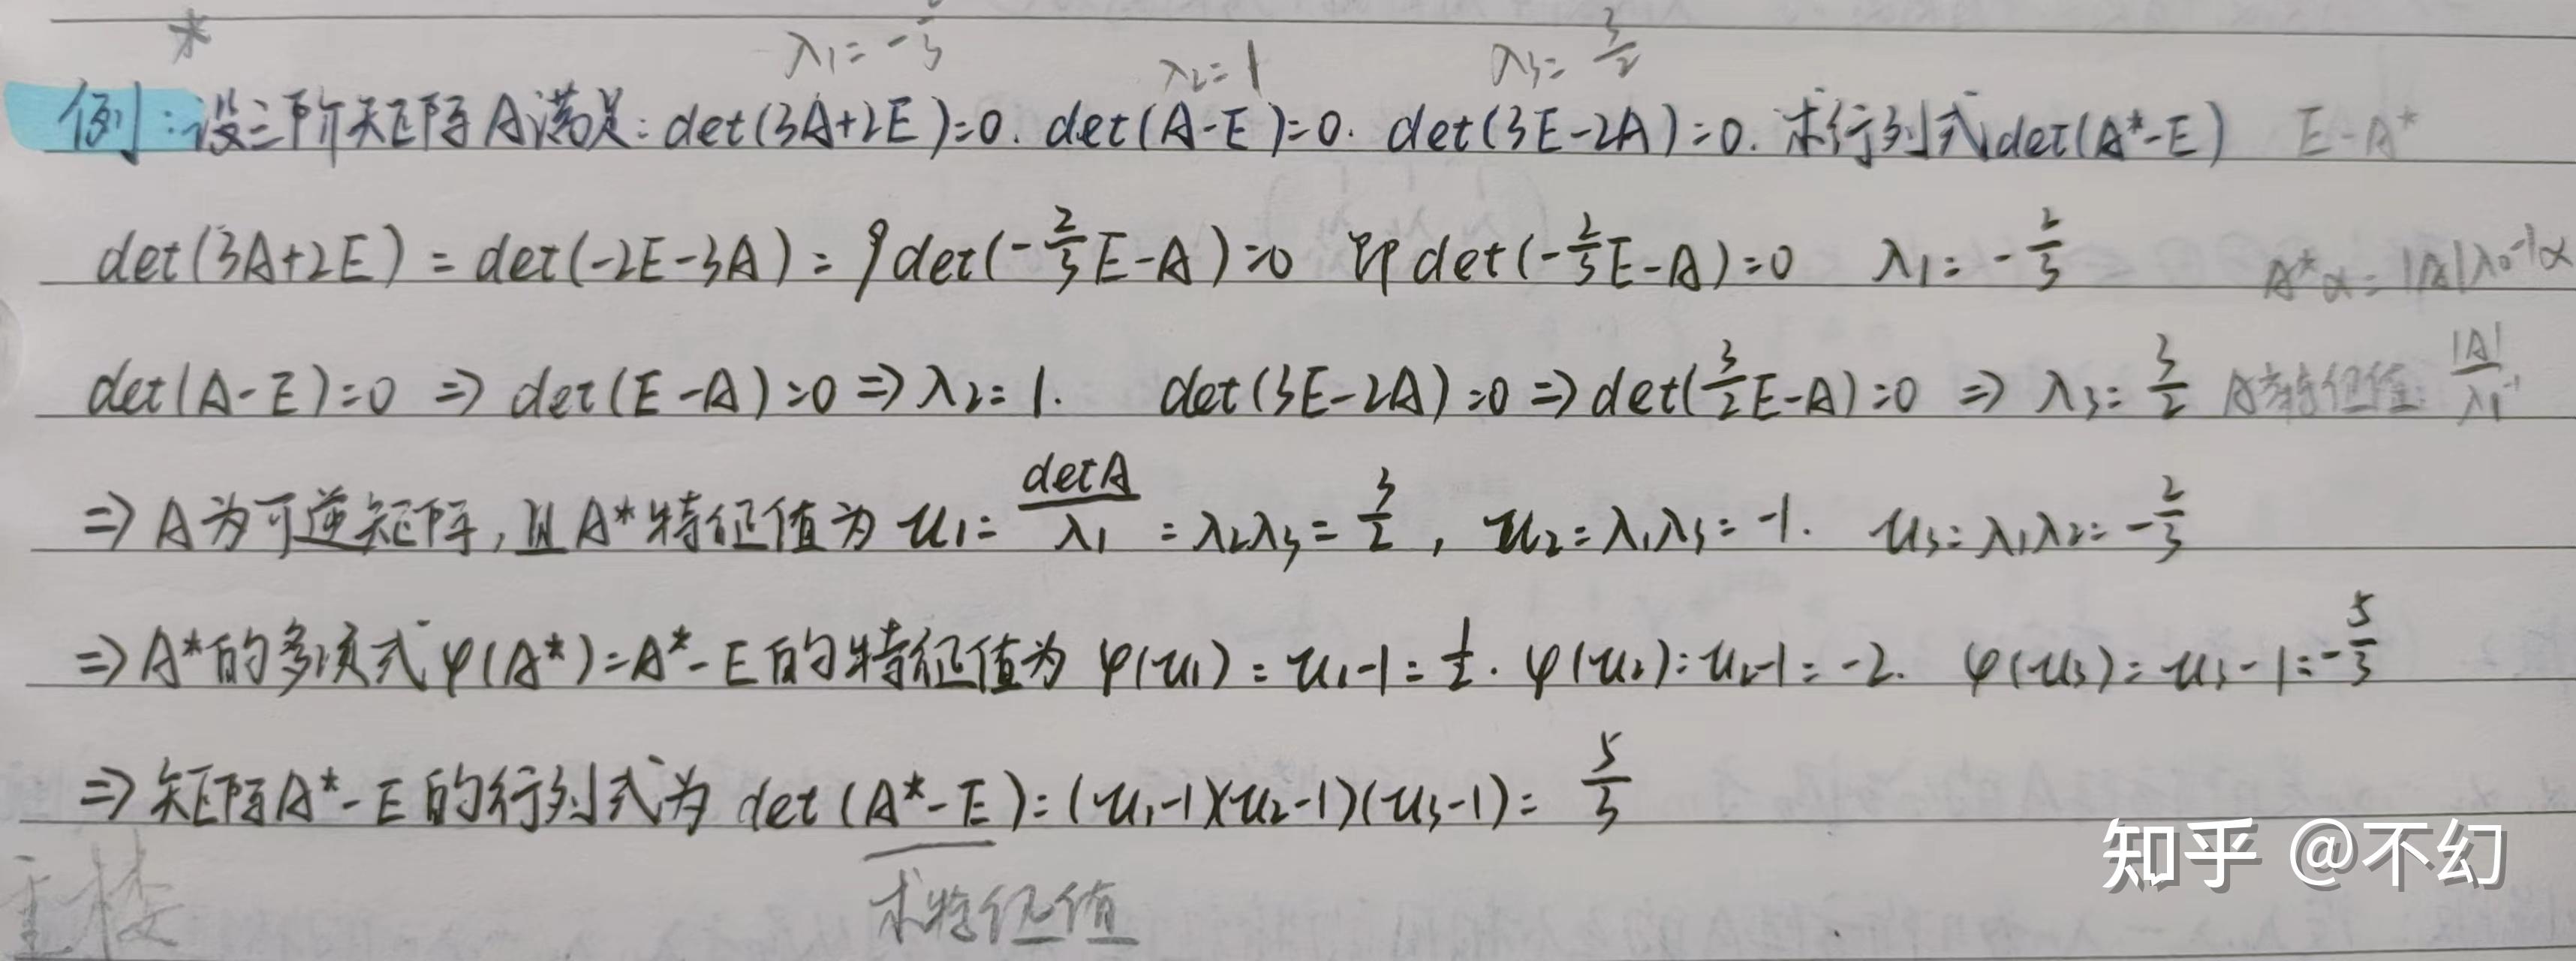 * λ₁=-\frac{2}{3} λ₂=1 λ₃=\frac{3}{2}
例:设三阶矩阵A满足:det(3A+2E)=0. det(A-E)=0. det(3E-2A)=0. 求行列式det(A*-E) E-A*
det(3A+2E)=det(-2E-3A)=9det(-\frac{2}{3}E-A)=0 即det(-\frac{2}{3}E-A)=0 λ₁=-\frac{2}{3} A*α=|A|λ₀⁻¹α
det(A-E)=0 ⇒ det(E-A)=0 ⇒ λ₂=1. det(3E-2A)=0 ⇒ det(\frac{3}{2}E-A)=0 ⇒ λ₃=\frac{3}{2} A*特征值: \frac{|A|}{λ₁}
⇒ A为可逆矩阵,且A*特征值为 u₁=\frac{detA}{λ₁}=λ₂λ₃=\frac{3}{2}, u₂=λ₁λ₃=-1. u₃=λ₁λ₂=-\frac{2}{3}
⇒ A*的多项式φ(A*)=A*-E的特征值为 φ(u₁)=u₁-1=\frac{1}{2}. φ(u₂)=u₂-1=-2. φ(u₃)=u₃-1=-\frac{5}{3}
⇒ 矩阵A*-E的行列式为 det(A*-E)=(u₁-1)(u₂-1)(u₃-1)=\frac{5}{3}
求特征值
知乎 @不幻